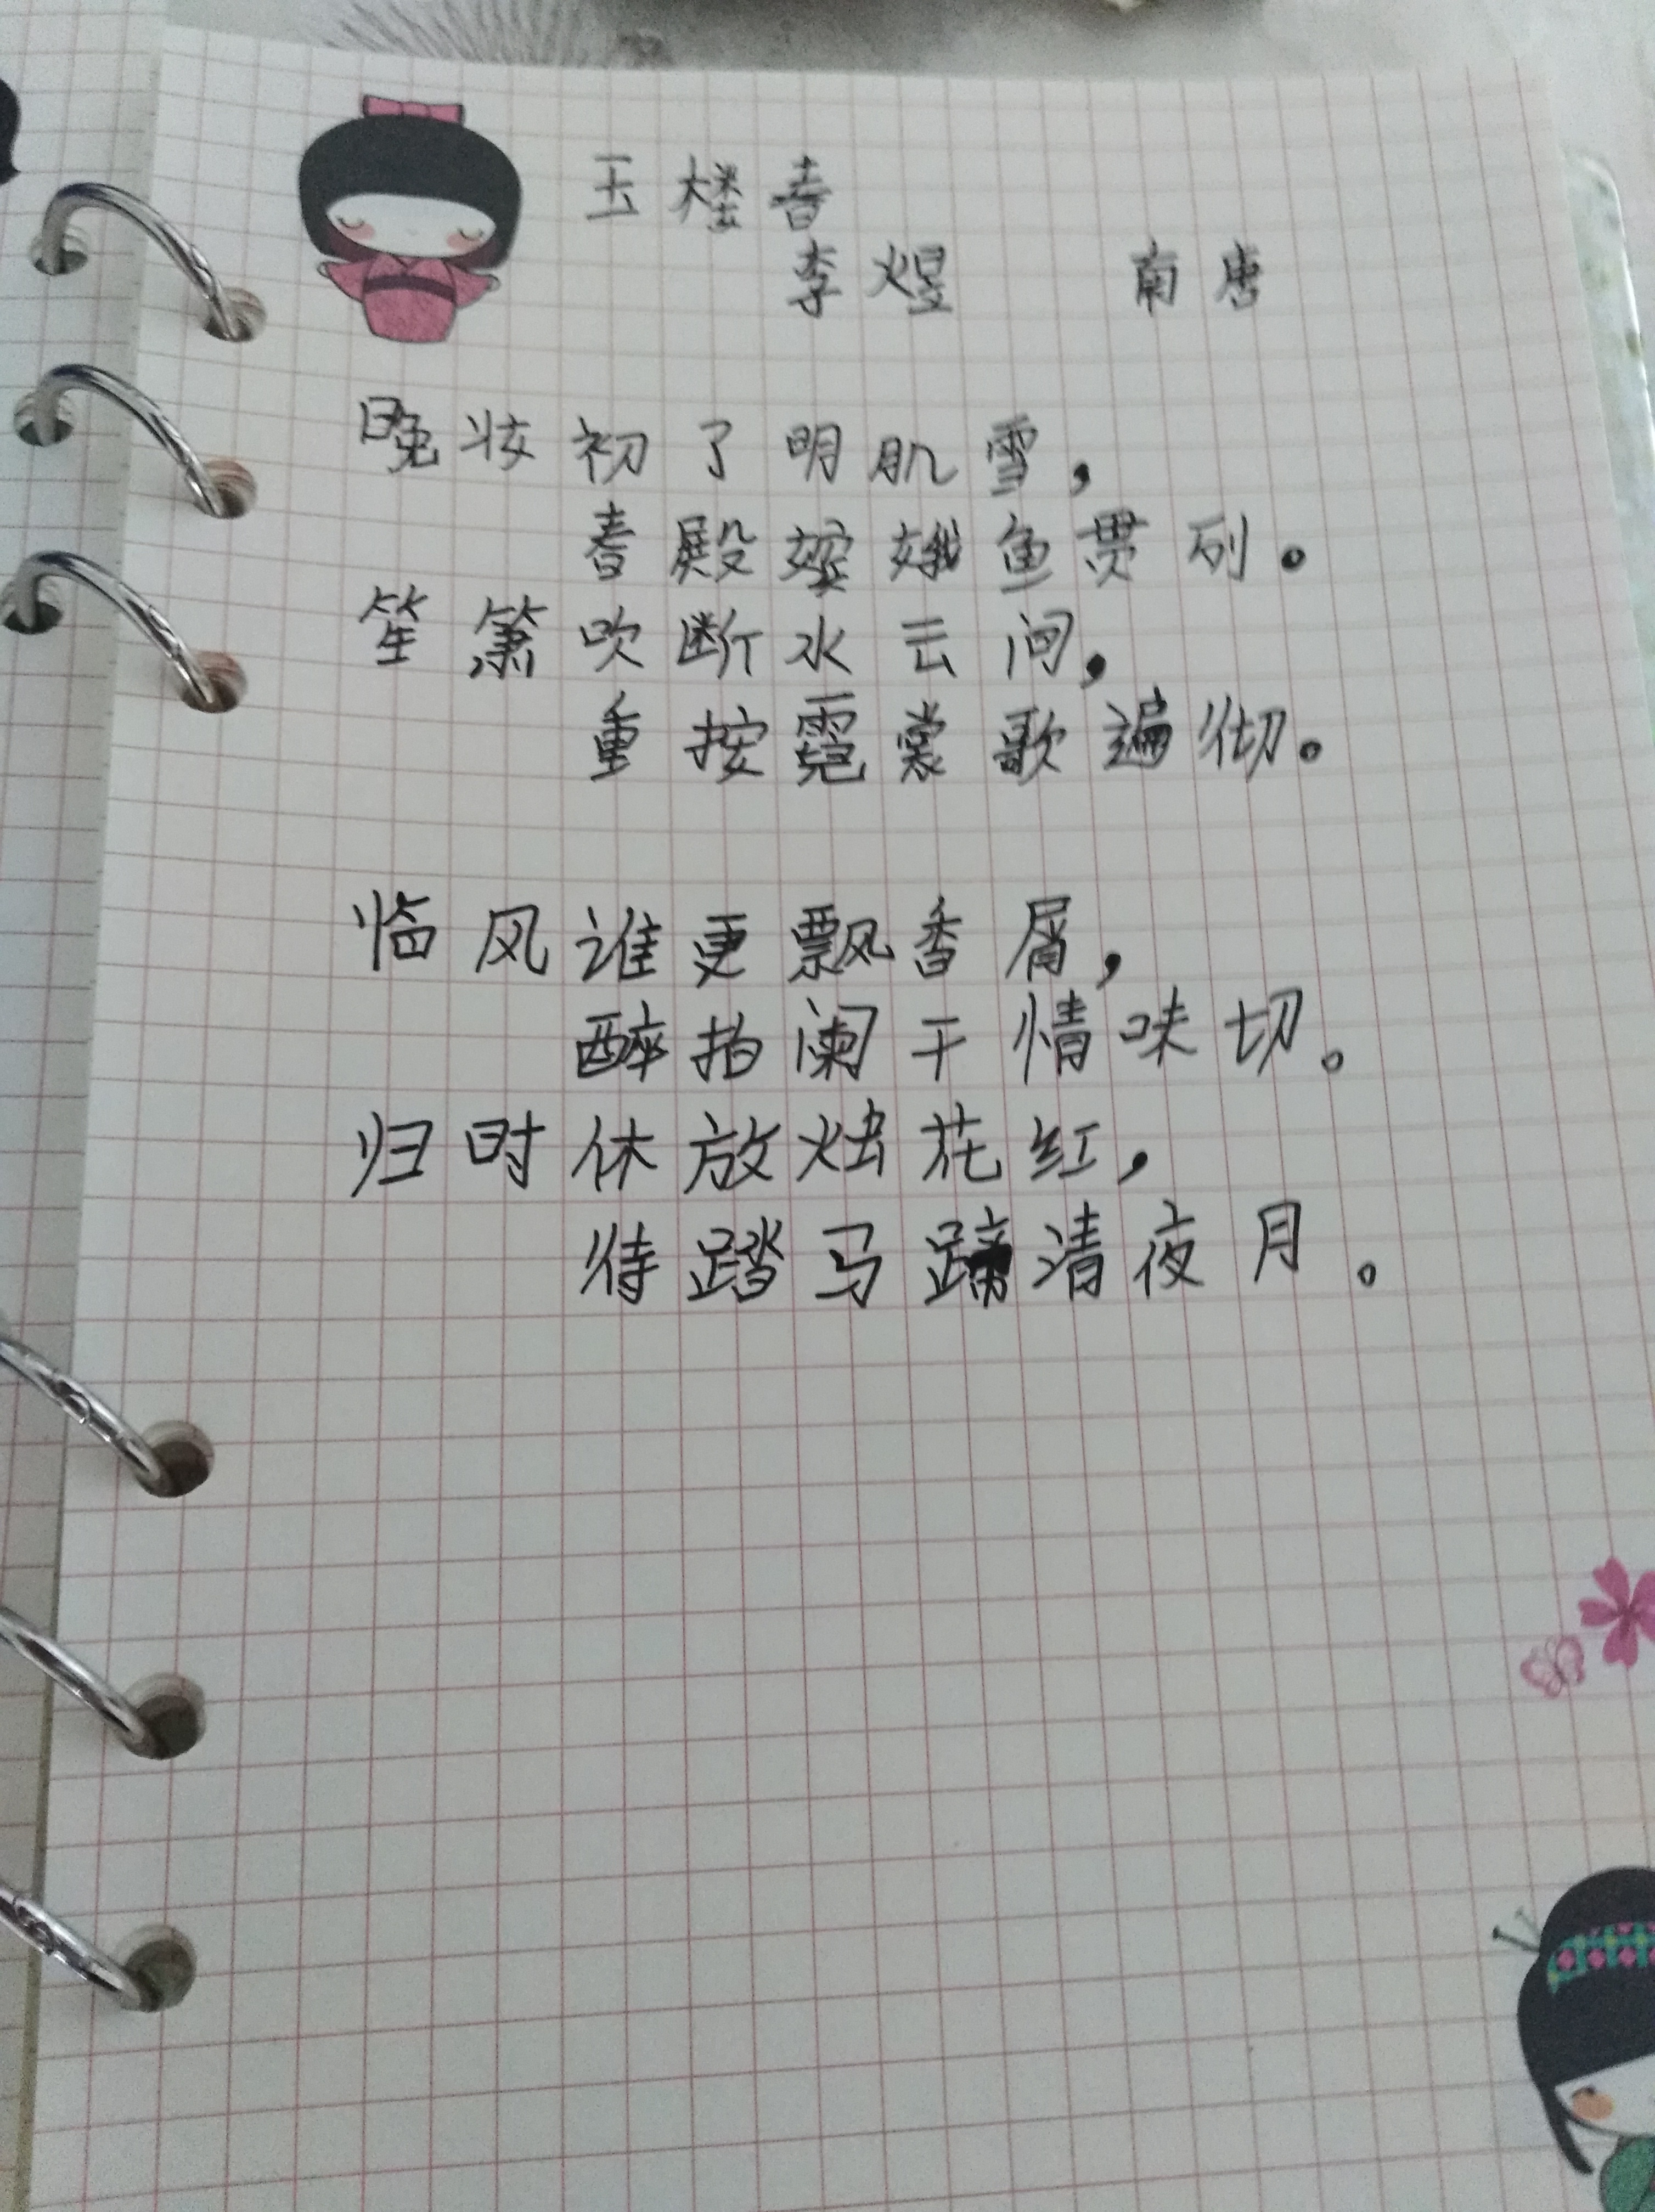 玉楼春
李煜 南唐
晚妆初了明肌雪，
春殿嫔娥鱼贯列。
笙箫吹断水云间，
重按霓裳歌遍彻。
临风谁更飘香屑，
醉拍阑干情味切。
归时休放烛花红，
待踏马蹄清夜月。